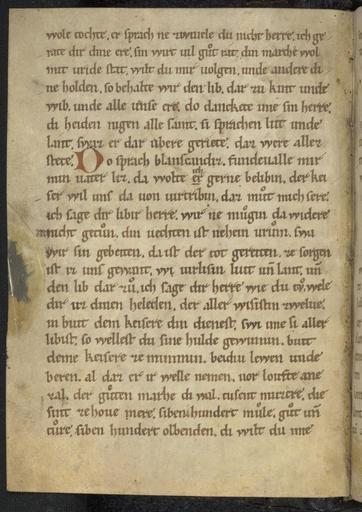 wole tochte, er sprach ne zwiuele du nicht herre, ich ge
rate dir dine ere, sin wirt uil gůt rat, din marche wol
mit uride stat, wilt du mir uolgen, unde andere di
ne holden, so behalte wir den lib, dar zu kint unde
wib, unde alle unse ere, do danckete ime sin herre,
di heiden nigen alle samt, si sprachen liut unde
lant, swaz er dar ubere geriete, daz were allez
stete. Do sprach blanscandiz, fundeualle mir
min uater liez, da wolte ich er gerne beliben, der kei
ser wil uns da uon uirtriben, daz můt mich sere,
ich sage dir libir herre, wir ne můgin da widere
nicht getůn, din uechten ist nehein urům, swa
wir sin gebeiten, da ist der tot gereiten, ze sorgen
ist iz uns gewant, wi uirlisin liut uñ lant, uñ
den lib dar zů, ich sage dir herre wie du tů, wele
dir uz dinen heleden, der aller wisistin zwelue,
in biut dem keisere din dienest, swi ime si aller
libist, so wellest du sine hulde gewinnin, biut
deme keisere ze minnin, beidiu lewen unde
beren, al daz er ir welle nemen, uor loufte ane
zal, der gůten marhe di wal, tusent muzere, die
sint ze houe mere, sibenhundert můle, gůt uñ
tůre, siben hundert olbenden, di wilt du ime